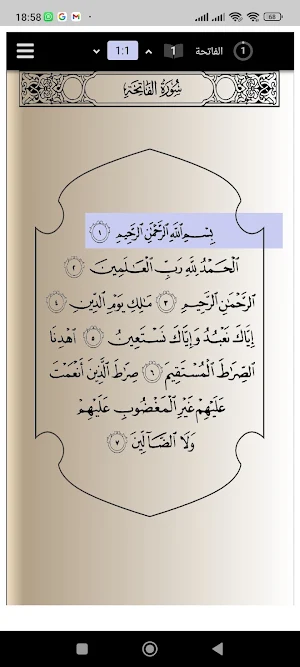 18:58
68
1:1
1
الفاتحة
1
سُورَةُ الفَاتِحَةِ
بِسْمِ ٱللَّهِ ٱلرَّحْمَٰنِ ٱلرَّحِيمِ ١
ٱلْحَمْدُ لِلَّهِ رَبِّ ٱلْعَٰلَمِينَ ٢
ٱلرَّحْمَٰنِ ٱلرَّحِيمِ ٣ مَٰلِكِ يَوْمِ ٱلدِّينِ ٤
إِيَّاكَ نَعْبُدُ وَإِيَّاكَ نَسْتَعِينُ ٥ ٱهْدِنَا
ٱلصِّرَٰطَ ٱلْمُسْتَقِيمَ ٦ صِرَٰطَ ٱلَّذِينَ أَنْعَمْتَ
عَلَيْهِمْ غَيْرِ ٱلْمَغْضُوبِ عَلَيْهِمْ
وَلَا ٱلضَّآلِّينَ ٧